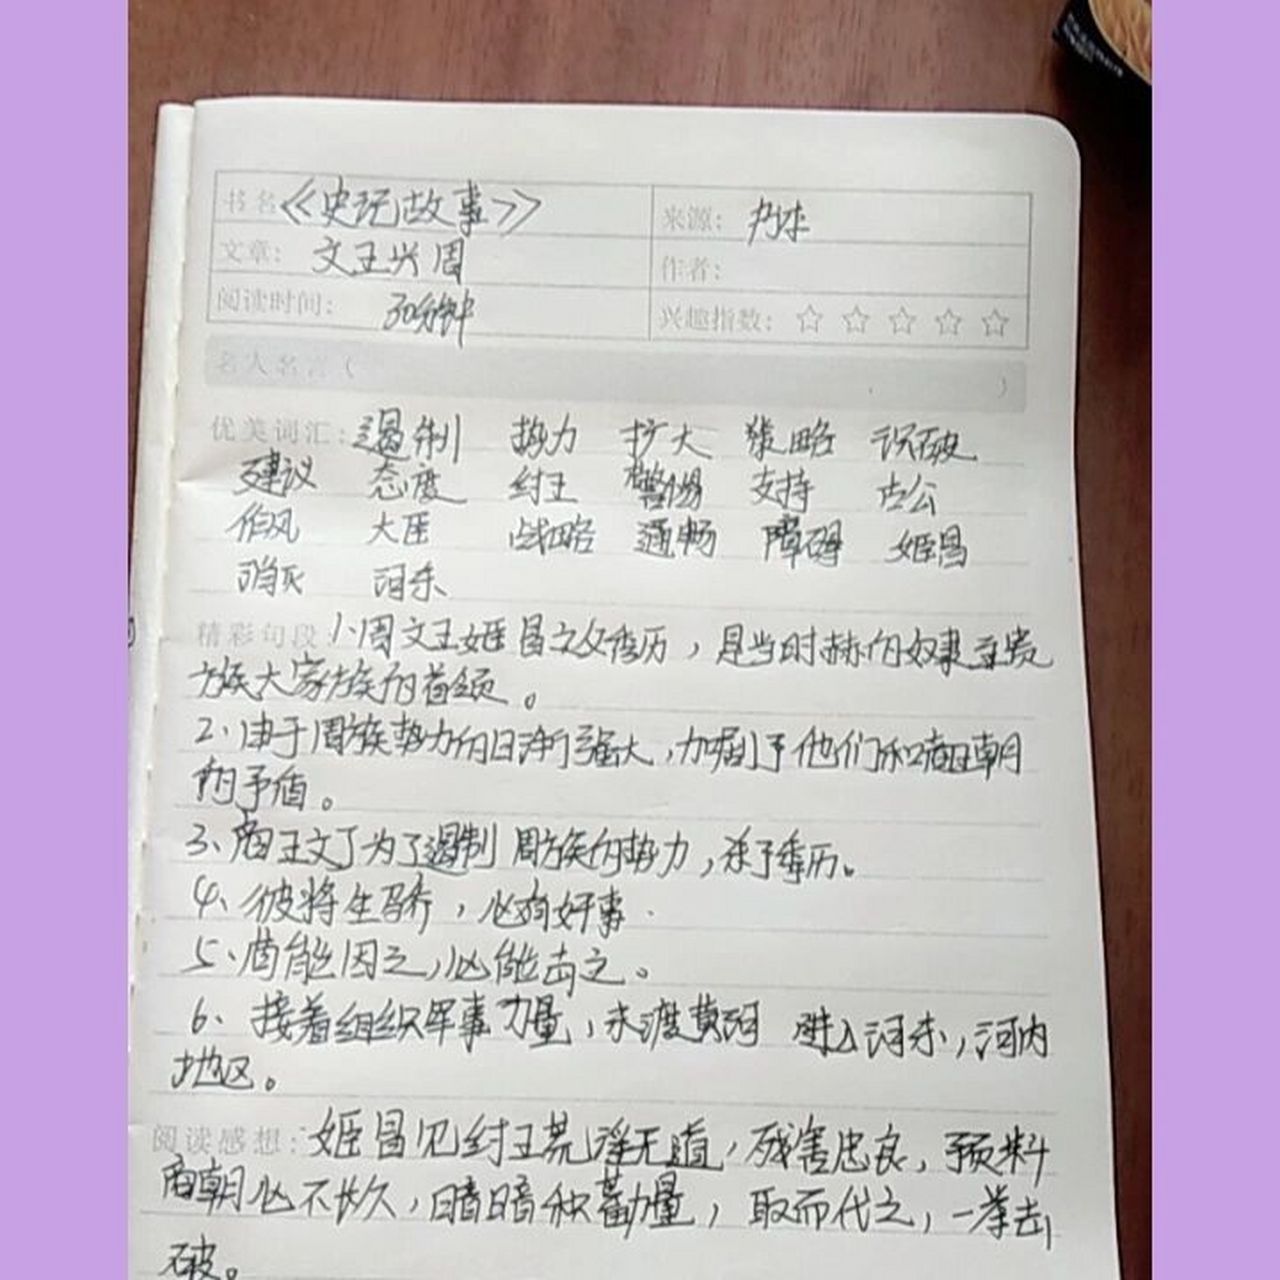 书名 《史记故事》 来源:
文章: 文王兴周 作者:
阅读时间: 30分钟 兴趣指数: ☆ ☆ ☆ ☆ ☆
名人名言( )
优美词汇: 遏制 势力 扩大 策略 识破
建议 态度 纣王 警惕 支持 古公
作风 大臣 战略 通畅 障碍 姬昌
消灭 河东
精彩句段 1、周文王姬昌之父季历,是当时赫的奴隶主贵
族大家族的首领。
2、由于周族势力的日渐强大,加剧了他们和商王朝
的矛盾。
3、商王文丁为了遏制周族的势力,杀了季历。
4、彼将生骄,必有奸事.
5、商能因之,必能击之。
6、接着组织军事力量,东渡黄河 进入河东,河内
地区。
阅读感想: 姬昌见纣王荒淫无道,残害忠良,预料
商朝必不长久,暗暗积蓄力量,取而代之,一举击
破。